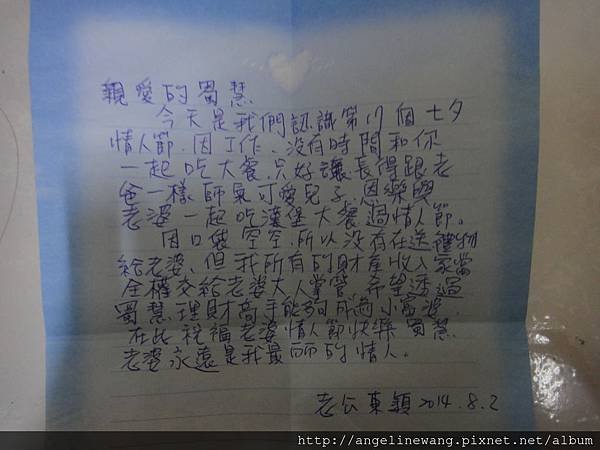 親愛的蜀慧
今天是我們認識第17個七夕
情人節.因工作.沒有時間和你
一起吃大餐.只好讓長得跟老
爸一樣帥氣可愛兒子.恩樂與
老婆一起吃漢堡大餐過情人節。
因口袋空空.所以沒有在送禮物
給老婆、但我所有的財產收入家當
全權交給老婆大人掌管.希望透過
蜀慧理財高手能夠成為小富婆.
在此祝福老婆情人節快樂蜀慧
老婆永遠是我最的情人。
老公東穎2014.8.2
http://angelinewang.pixnet.net/album